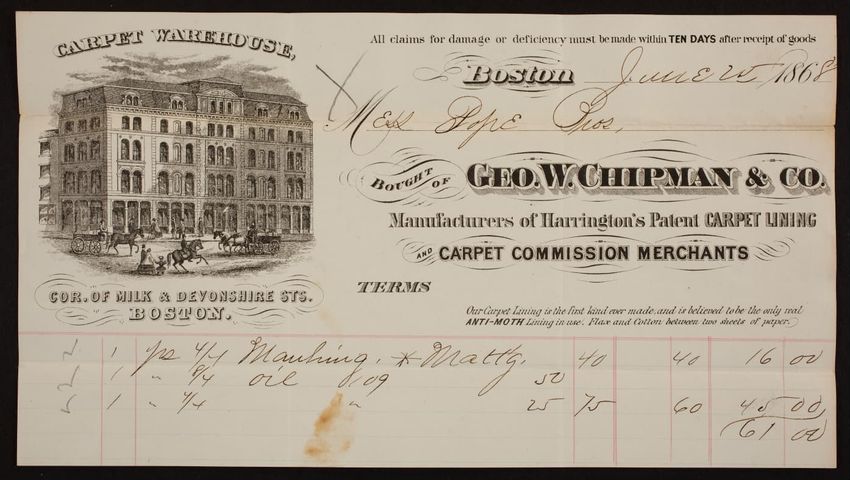 CARPET WAREHOUSE,
COR. OF MILK & DEVONSHIRE STS.
BOSTON.
All claims for damage or deficiency must be made within TEN DAYS after receipt of goods
Boston June 25 1868
Mess Pope Bros,
BOUGHT OF GEO. W. CHIPMAN & CO.
Manufacturers of Harrington's Patent CARPET LINING
AND CARPET COMMISSION MERCHANTS
TERMS
Our Carpet Lining is the first kind ever made, and is believed to be the only real
ANTI-MOTH Lining in use. Flax and Cotton between two sheets of paper.
1 ps 4/4 Mattg. 40 40 16 00
1 " oil 50
1 " 4/4 " 25 75 60 45 00
61 00